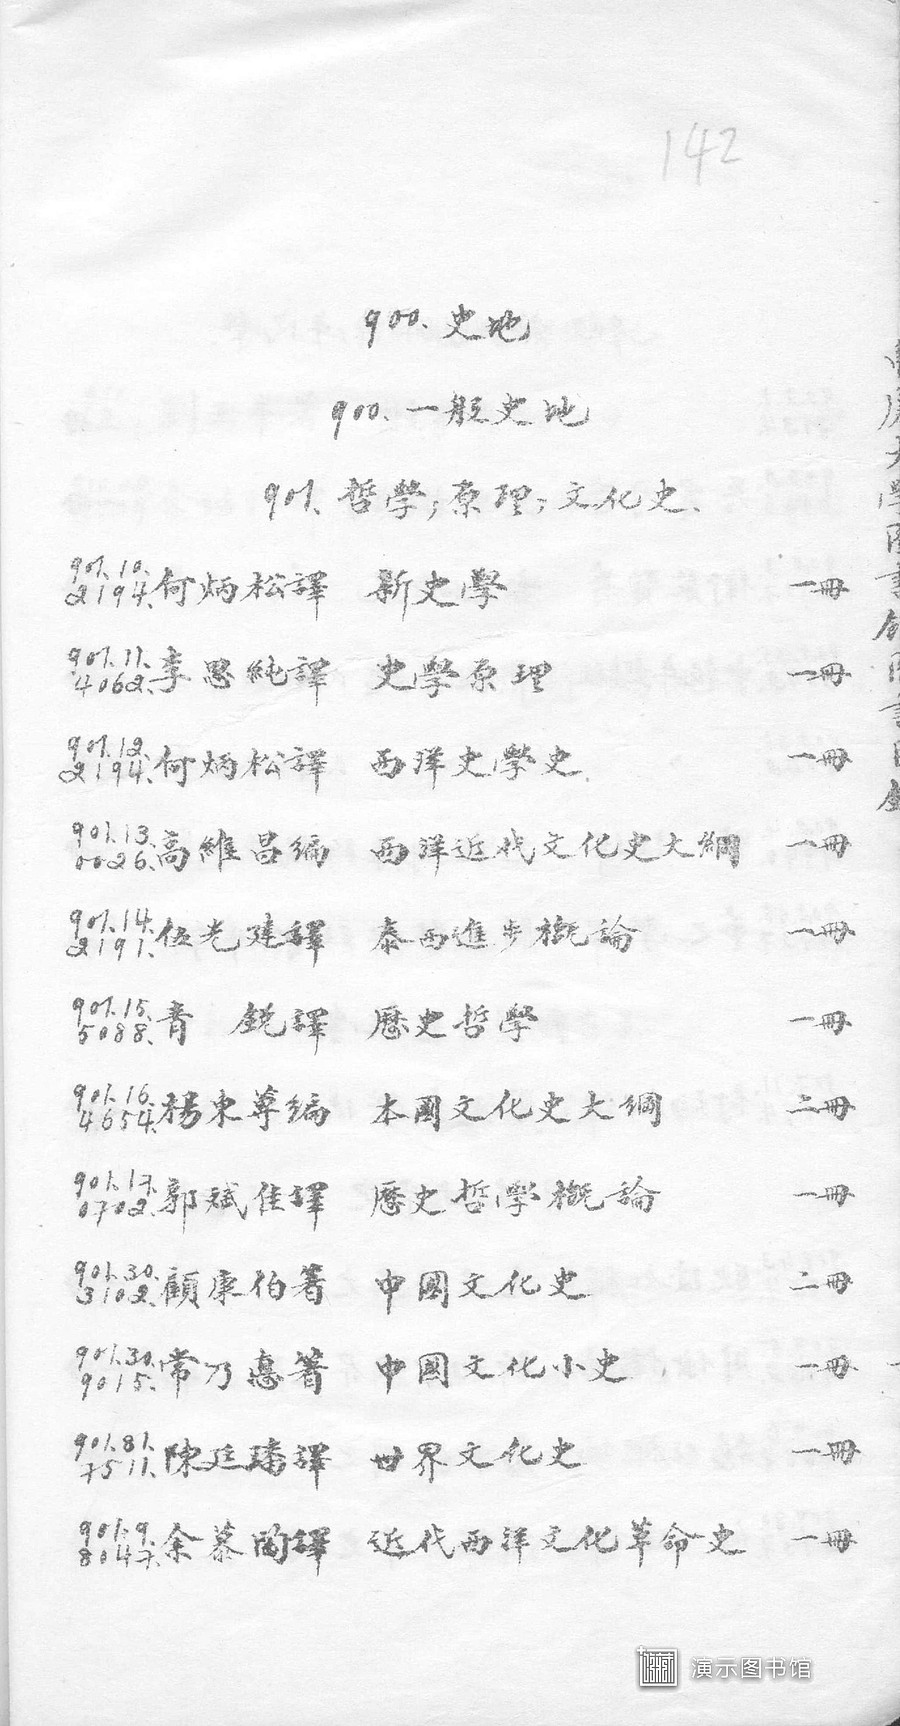 142
900. 史地
900. 一般史地
901. 哲學；原理；文化史.
901.10. 2194. 何炳松譯 新史學 一冊
901.11. 4062. 李思純譯 史學原理 一冊
901.12. 2194. 何炳松譯 西洋史學史 一冊
901.13. 0026. 高維昌編 西洋近代文化史大綱 一冊
901.14. 2191. 伍光建譯 泰西進步概論 一冊
901.15. 5088. 青 銳譯 歷史哲學 一冊
901.16. 4654. 楊東蓴編 本國文化史大綱 二冊
901.17. 0702. 郭斌佳譯 歷史哲學概論 一冊
901.30. 3102. 顧康伯著 中國文化史 二冊
901.30. 9015. 常乃惪著 中國文化小史 一冊
901.81. 7511. 陳廷璠譯 世界文化史 一冊
901.9. 8047. 余慕陶譯 近代西洋文化革命史 一冊
大學圖書館圖書目錄
演示图书馆